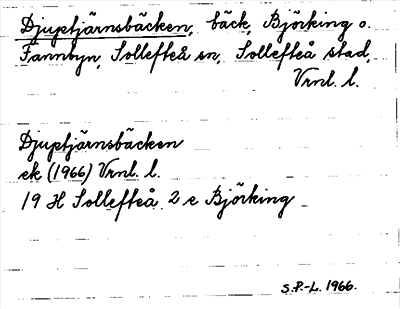 Djuptjärnsbäcken, bäck, Björking o.
Fannbyn, Sollefteå sn, Sollefteå stad,
Vrnl. l.
Djuptjärnsbäcken
ek (1966) Vrnl. l.
19 H Sollefteå 2 e Björking
S.P.-L. 1966.